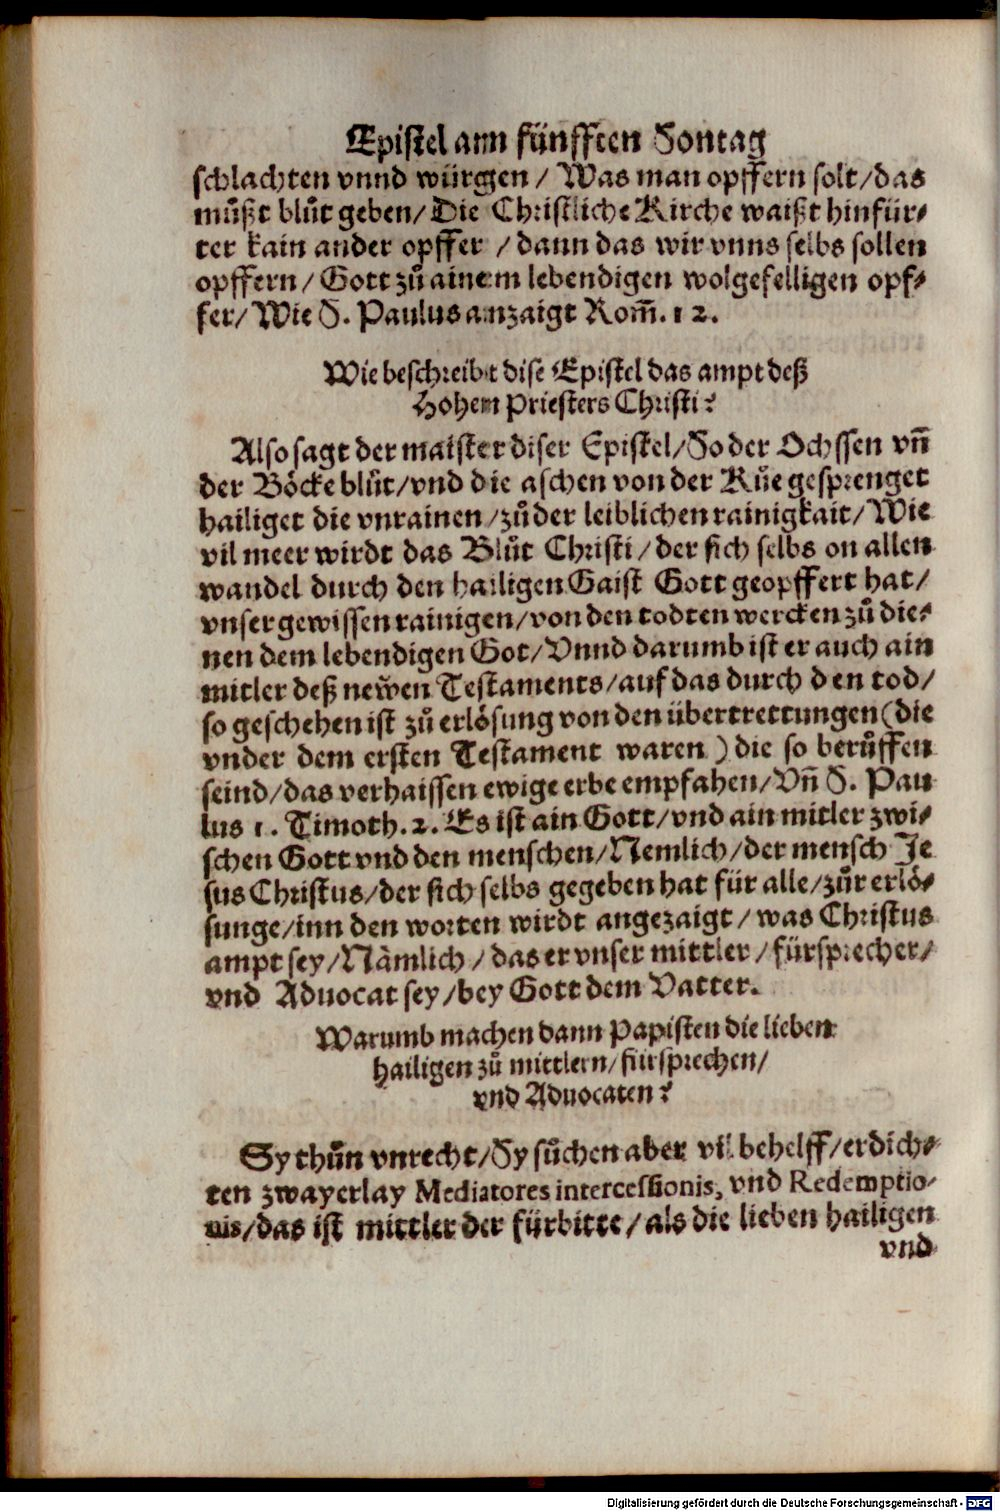 Epistel am fünfften Sontag
schlachten vnnd würgen / Was man opffern solt/das
můßt blůt geben/Die Christliche Kirche waißt hinfür⸗
ter kain ander opffer / dann das wir vnns selbs sollen
opffern/ Gott zů ainem lebendigen wolgefelligen opf⸗
fer/ Wie S. Paulus anzaigt Rom̃. 12.
Wie beschreibt dise Epistel das ampt deß
Hohem Priesters Christi?
Also sagt der maister diser Epistel/So der Ochssen vñ
der Böcke blůt/vnd die aschen von der Kůe gesprenget
hailiget die vnrainen/zů der leiblichen rainigkait/Wie
vil meer wirdt das Blůt Christi/der sich selbs on allen
wandel durch den hailigen Gaist Gott geopffert hat/
vnser gewissen rainigen/von den todten wercken zů die⸗
nen dem lebendigen Got/Vnnd darumb ist er auch ain
mitler deß neẅen Testaments/auf das durch den tod/
so geschehen ist zů erlösung von den übertrettungen(die
vnder dem ersten Testament waren ) die so berůffen
seind/das verhaissen ewige erbe empfahen/Vñ S. Pau
lus 1. Timoth. 2. Es ist ain Gott/vnd ain mitler zwi⸗
schen Gott vnd den menschen/Nemlich/der mensch Je
sus Christus/der sich selbs gegeben hat für alle/zůr erlö⸗
sunge/inn den worten wirdt angezaigt/was Christus
ampt sey/Nämlich/das er vnser mittler/fürsprecher/
vnd Aduocat sey/bey Gott dem Vatter.
Warumb machen dann Papisten die lieben
hailigen zů mittlern/fürsprechen/
vnd Aduocaten?
Sy thůn vnrecht/Sy sůchen aber vil behelff/erdich⸗
ten zwayerlay Mediatores intercessionis, vnd Redemptio-
nis/das ist mittler der fürbitte/als die lieben hailigen
vnd
Digitalisierung gefördert durch die Deutsche Forschungsgemeinschaft - DFG